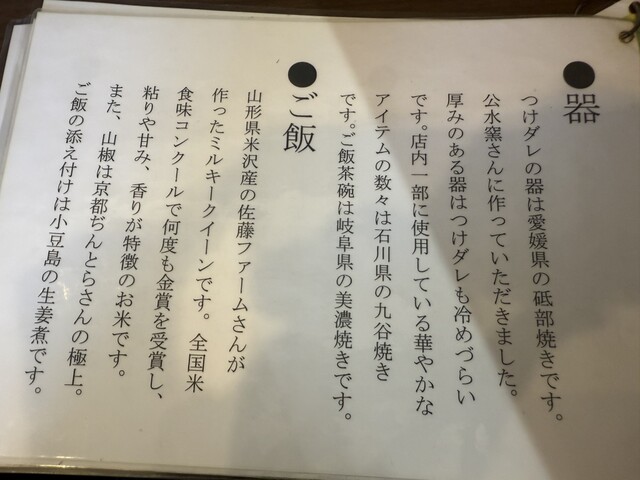 ●器
つけダレの器は愛媛県の砥部焼きです。
公水窯さんに作っていただきました。
厚みのある器はつけダレも冷めづらい
です。店内一部に使用している華やかな
アイテムの数々は石川県の九谷焼き
です。ご飯茶碗は岐阜県の美濃焼きです。
●ご飯
山形県米沢産の佐藤ファームさんが
作ったミルキークイーンです。全国米
食味コンクールで何度も金賞を受賞し、
粘りや甘み、香りが特徴のお米です。
また、山椒は京都ぢんとらさんの極上。
ご飯の添え付けは小豆島の生姜煮です。